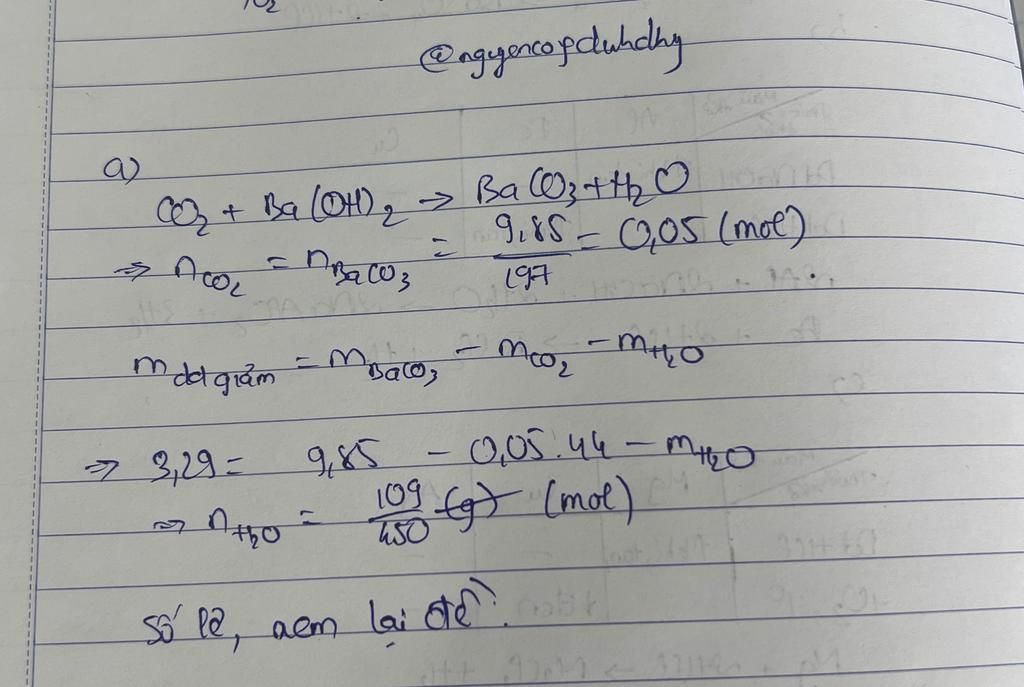 @nguyencopduhdhy
a)
CO₂ + Ba(OH)₂ → BaCO₃ + H₂O
⇒ nCO₂ = nBaCO₃ = 9,85/197 = 0,05 (mol).
m dd giảm = mBaCO₃ - mCO₂ - mH₂O
⇒ 3,29 = 9,85 - 0,05.44 - mH₂O
⇒ nH₂O = 109/450 (g) (mol)
Số lẻ, xem lại đề.